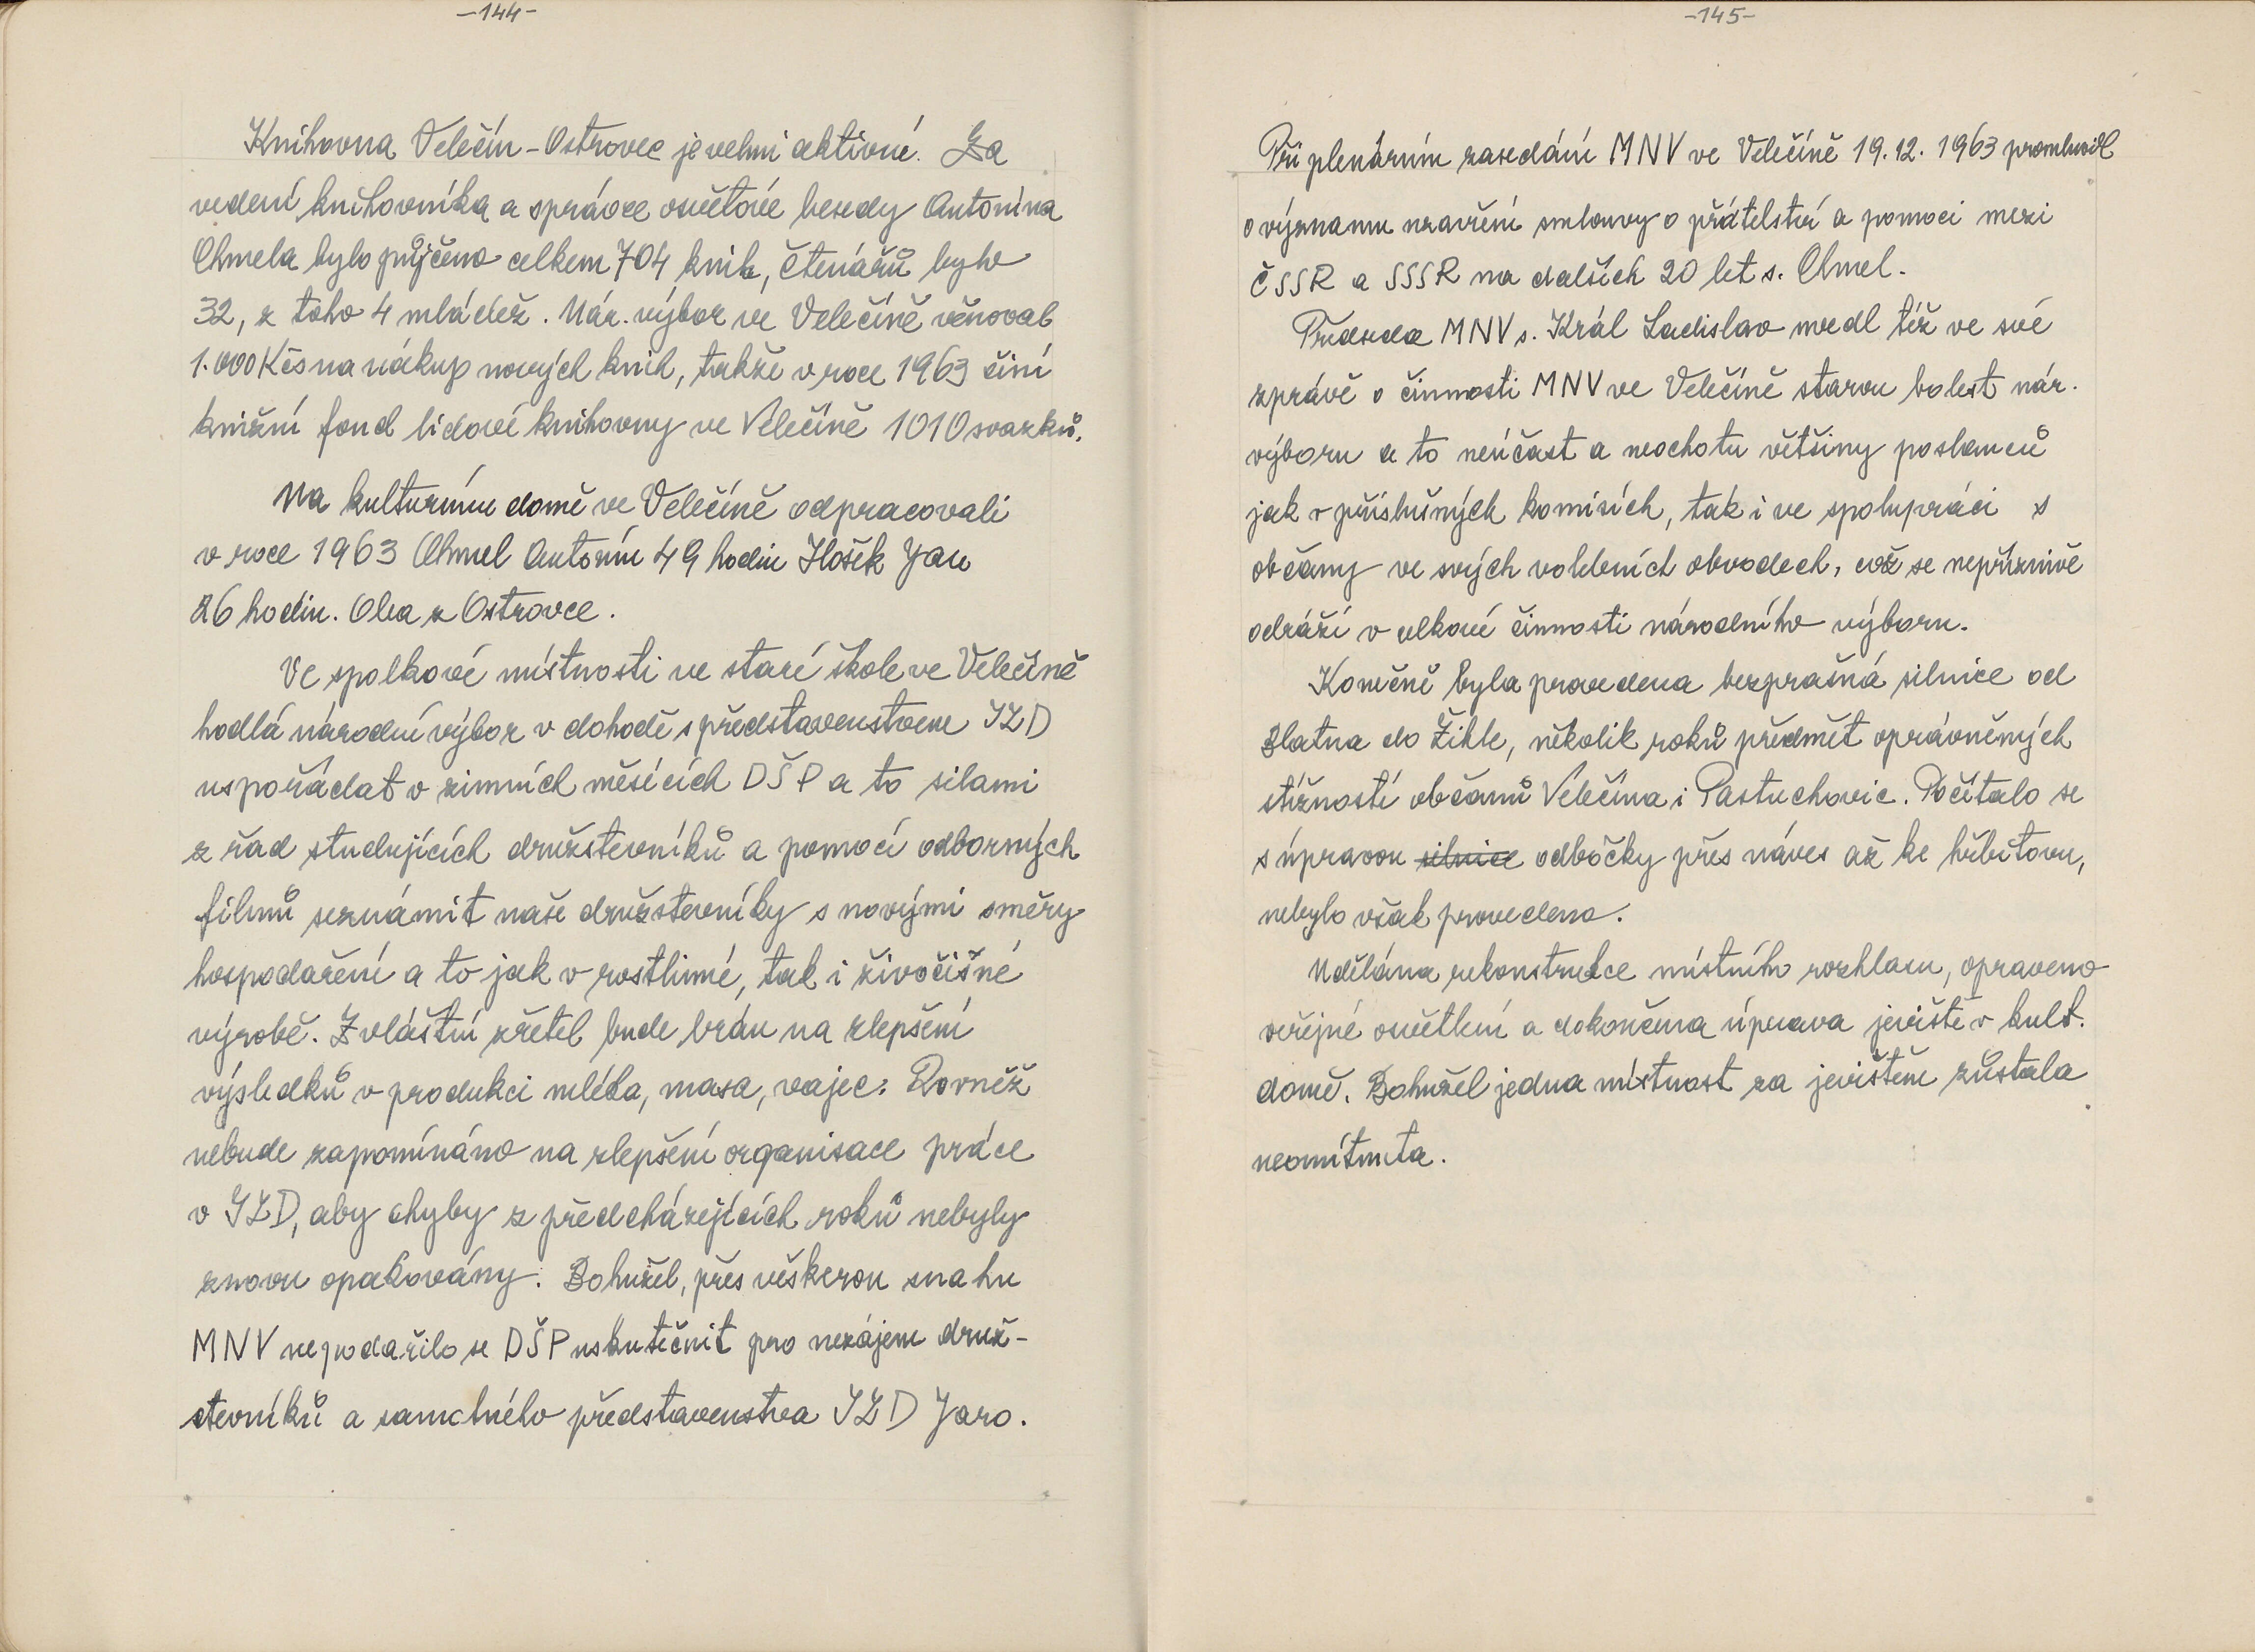 -144-
Knihovna Velečín-Ostrovec je velmi aktivní. Za
vedení knihovníka a správce osvětové besedy Antonína
Chmela bylo půjčeno celkem 704 knih, čtenářů bylo
32, z toho 4 mládež. Nár. výbor ve Velečíně věnoval
1.000 Kčs na nákup nových knih, takže v roce 1963 činí
knižní fond lidové knihovny ve Velečíně 1010 svazků.
Na kulturním domě ve Velečíně odpracovali
v roce 1963 Chmel Antonín 49 hodin Hošek Jan
26 hodin. Oba z Ostrovce.
Ve spolkové místnosti ve staré škole ve Velečíně
hodlá národní výbor v dohodě s představenstvem JZD
uspořádat v zimních měsících DŠP a to silami
z řad studujících družstevníků a pomocí odborných
filmů seznámit naše družstevníky s novými směry
hospodaření a to jak v rostlinné, tak i živočišné
výrobě. Zvláštní zřetel bude brán na zlepšení
výsledků v produkci mléka, masa, vajec. Rovněž
nebude zapomínáno na zlepšení organisace práce
v JZD, aby chyby z předcházejících roků nebyly
znovu opakovány. Bohužel, přes veškerou snahu
MNV nepodařilo se DŠP uskutečnit pro nezájem druž-
stevníků a samotného představenstva JZD Jaro.
-145-
Při plenárním zasedání MNV ve Velečíně 19.12. 1963 promluvil
o významu uzavření smlouvy o přátelství a pomoci mezi
ČSSR a SSSR na dalších 20 let s. Chmel.
Předseda MNV s. Král Ladislav uvedl též ve své
zprávě o činnosti MNV ve Velečíně starou bolest nár.
výboru a to neúčast a neochotu většiny poslanců
jak v příslušných komisích, tak i ve spolupráci s
občany ve svých volebních obvodech, což se nepříznivě
odráží v celkové činnosti národního výboru.
Konečně byla provedena bezprašná silnice od
Blatna do Žihle, několik roků předmět oprávněných
stížností občanů Velečína i Pastuchovic. Počítalo se
s úpravou silnice odbočky přes náves až ke hřbitovu,
nebylo však provedeno.
Udělána rekonstrukce místního rozhlasu, opraveno
veřejné osvětlení a dokončena úprava jeviště v kult.
domě. Bohužel jedna místnost za jevištěm zůstala
neomítnuta.